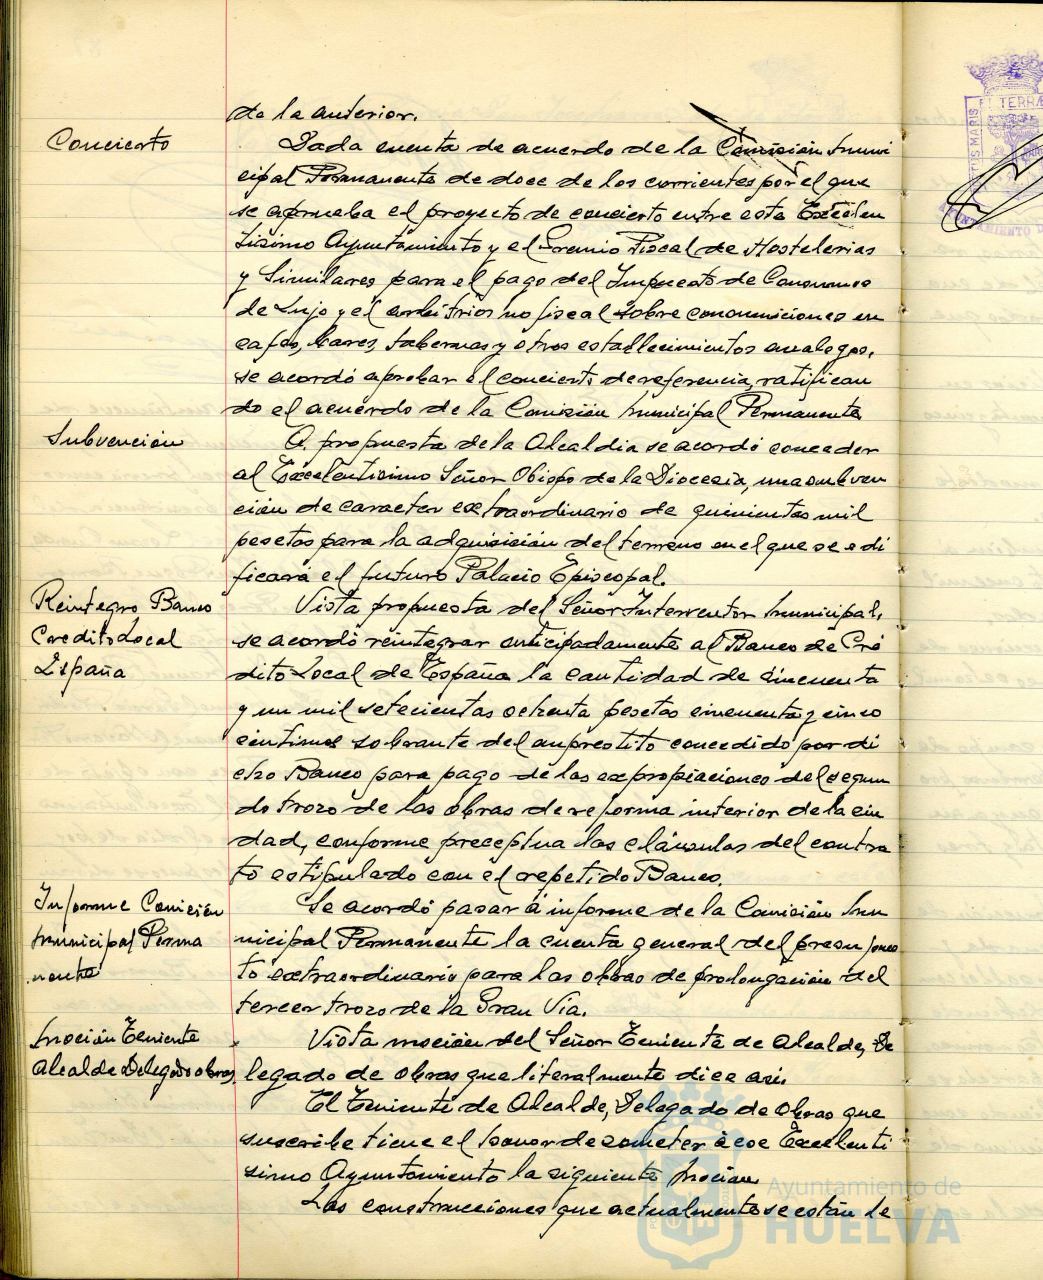 de la anterior.
Concierto
Dada cuenta de acuerdo de la Comisión Muni
cipal Permanente de doce de los corrientes por el que
se aprueba el proyecto de concierto entre este Excelen
tísimo Ayuntamiento y el Gremio Fiscal de Hostelerias
y Similares para el pago del Impuesto de Consumos
de Lujo y el arbitrios no fiscal sobre consumiciones en
cafes, bares, tabernas y otros establecimientos analogos,
se acordó aprobar el concierto de referencia, ratifican
do el acuerdo de la Comisión Municipal Permanente
Subvención
A propuesta de la Alcaldia se acordó conceder
al Excelentisimo Señor Obispo de la Diocesis, una subven
ción de caracter extraordinario de quinientas mil
pesetas para la adquisición del terreno en el que se edi
ficará el futuro Palacio Episcopal.
Reintegro Banco
Credito Local
España
Vista propuesta del Señor Interventor Municipal,
se acordó reintegrar anticipadamente al Banco de Cré
dito Local de España la cantidad de cincuenta
y un mil setecientas ochenta pesetas cincuenta y cinco
centimos sobrante del anprestito concedido por di
cho Banco para pago de las expropiaciones del segun
do trozo de las obras de reforma interior de la ciu
dad, conforme preceptua las cláusulas del contra
to estipulado con el repetido Banco.
Informe Comisión
Municipal Perma
nente
Se acordó pasar á informe de la Comisión Mu
nicipal Permanente la cuenta general del presupues
to extraordinario para las obras de prolongación del
tercer trozo de la Gran Vía.
Moción Teniente
Alcalde Delegado obras
Vista moción del Señor Teniente de Alcalde, De
legado de obras que literalmente dice asi:
El Teniente de Alcalde, Delegado de Obras que
suscribe tiene el honor de someter á ese Excelenti
simo Ayuntamiento la siguiente Moción
Las construcciones que actualmente se están le
Ayuntamiento de
HUELVA